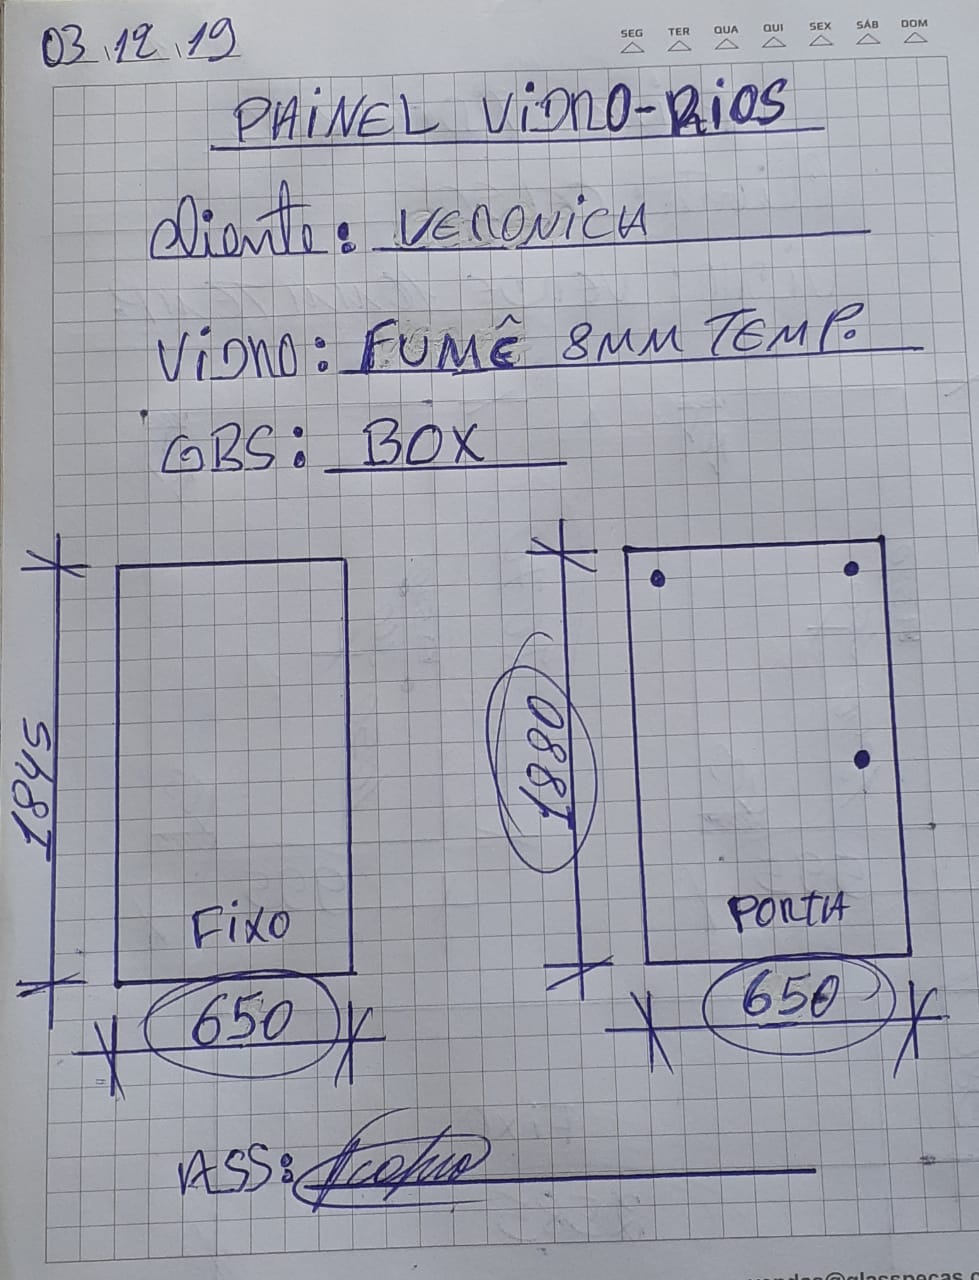 03.12.19
SEG TER QUA QUI SEX SÁB DOM
PAINEL VIDRO-RIOS
Cliente: VERONICA
VIDRO: FUMÊ 8MM TEMP.
OBS: BOX
1845
1880
FIXO
PORTA
650
650
ASS: